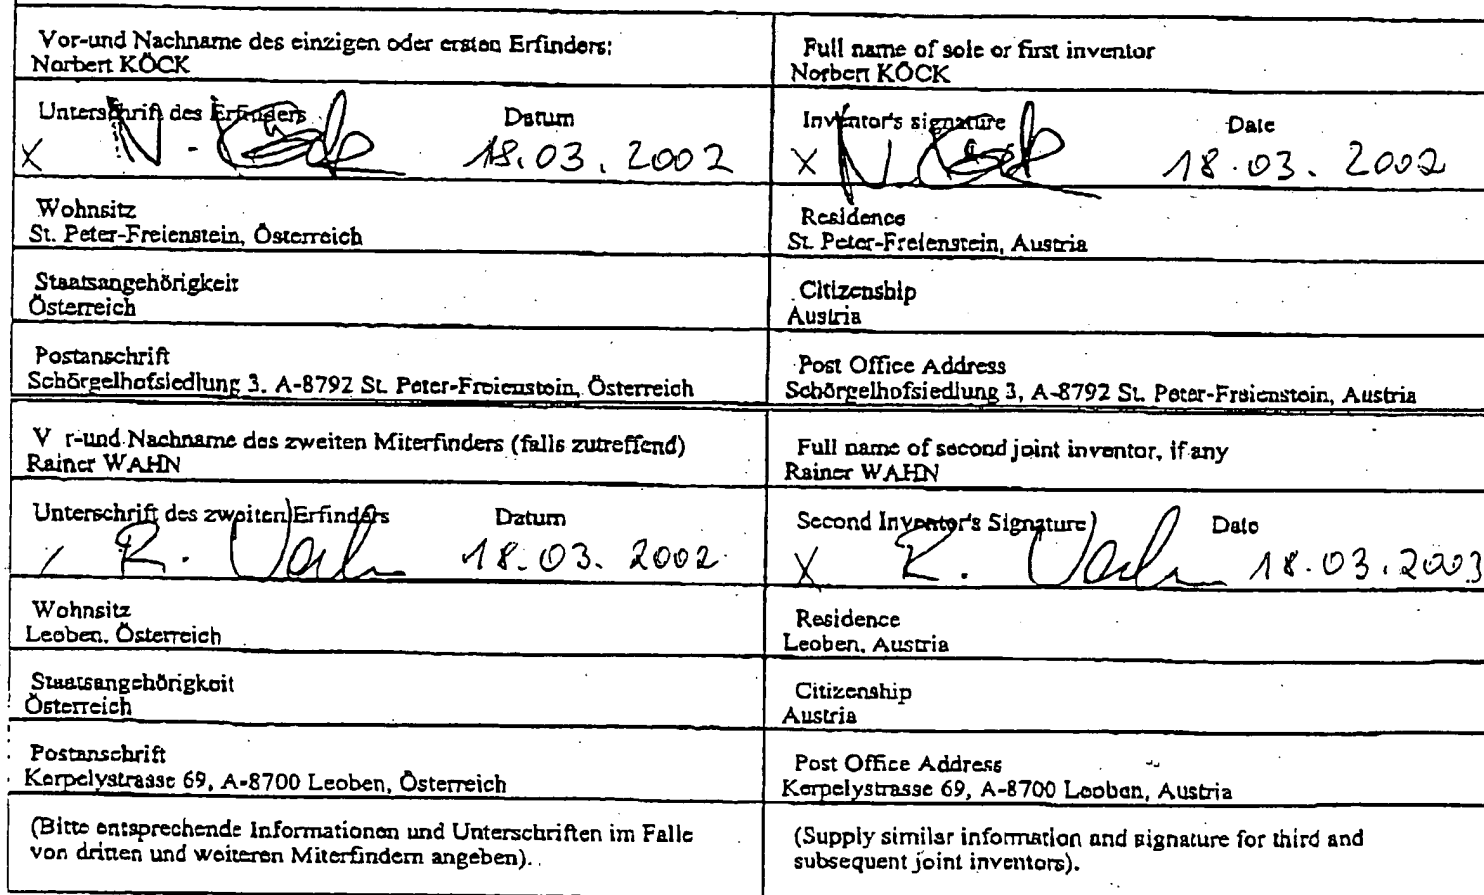 Vor-und Nachname des einzigen oder ersten Erfinders:
Norbert KÖCK
Full name of sole or first inventor
Norbert KÖCK
Unterschrift des Erfinders Datum
X N. Köck 18.03.2002
Inventor's signature Date
X N. Köck 18.03.2002
Wohnsitz
St. Peter-Freienstein, Österreich
Residence
St. Peter-Freienstein, Austria
Staatsangehörigkeit
Österreich
Citizenship
Austria
Postanschrift
Schörgelhofsiedlung 3. A-8792 St. Peter-Freienstein, Österreich
Post Office Address
Schörgelhofsiedlung 3, A-8792 St. Peter-Freienstein, Austria
V r-und Nachname des zweiten Miterfinders (falls zutreffend)
Rainer WAHN
Full name of second joint inventor, if any
Rainer WAHN
Unterschrift des zweiten Erfinders Datum
R. 18.03.2002
Second Inventor's Signature Date
X R. 18.03.2003
Wohnsitz
Leoben, Österreich
Residence
Leoben, Austria
Staatsangehörigkeit
Österreich
Citizenship
Austria
Postanschrift
Kerpelystrasse 69, A-8700 Leoben, Österreich
Post Office Address
Kerpelystrasse 69, A-8700 Leoben, Austria
(Bitte entsprechende Informationen und Unterschriften im Falle
von dritten und weiteren Miterfindern angeben).
(Supply similar information and signature for third and
subsequent joint inventors).